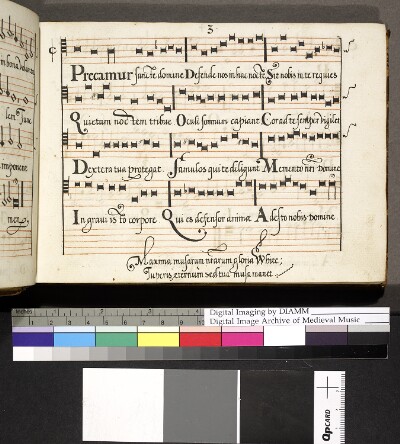 3
Precamur sancte domine Defende nos in hac nocte Sit nobis in te requies
Quietam noctem tribue Oculi somnum capiant Cor ad te semper vigilet
Dextera tua protegat Famulos qui te diligunt Memento nri Domine
In gravi isto corpore Qui es defensor animæ Adesto nobis Domine
Maxima musarum nrarum gloria White;
Tu peris, eternum sed tua musa manet.
Digital Imaging by DIAMM
Digital Image Archive of Medieval Music
inches 1 2 3 4 5 6 7 8
QPCARD